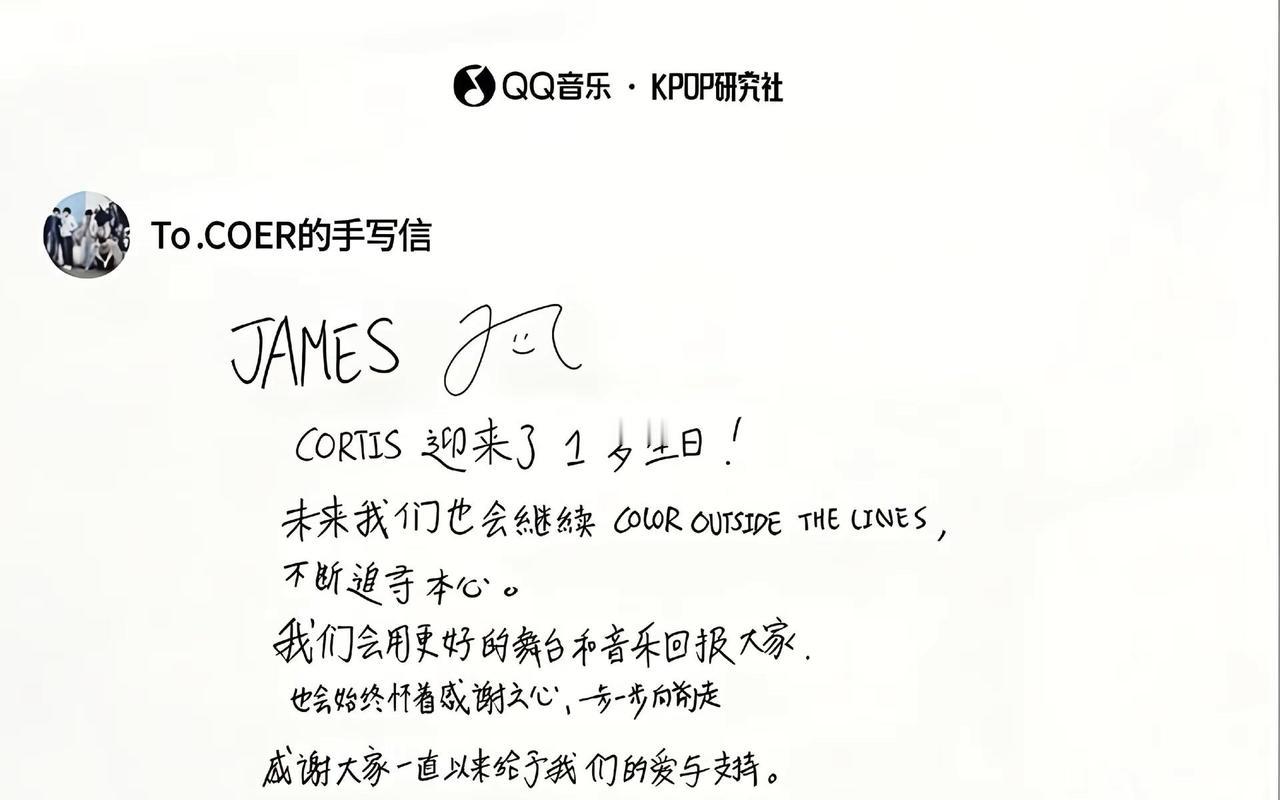 QQ音乐 · KPOP研究社
To.COER的手写信
JAMES
CORTIS 迎来了 1 岁生日!
未来我们也会継続 COLOR OUTSIDE THE LINES,
不断追寻本心。
我们会用更好的舞台和音乐回报大家.
也会始终怀着感谢之心,一步一步向前走
感谢大家一直以来给予我们的爱与支持。